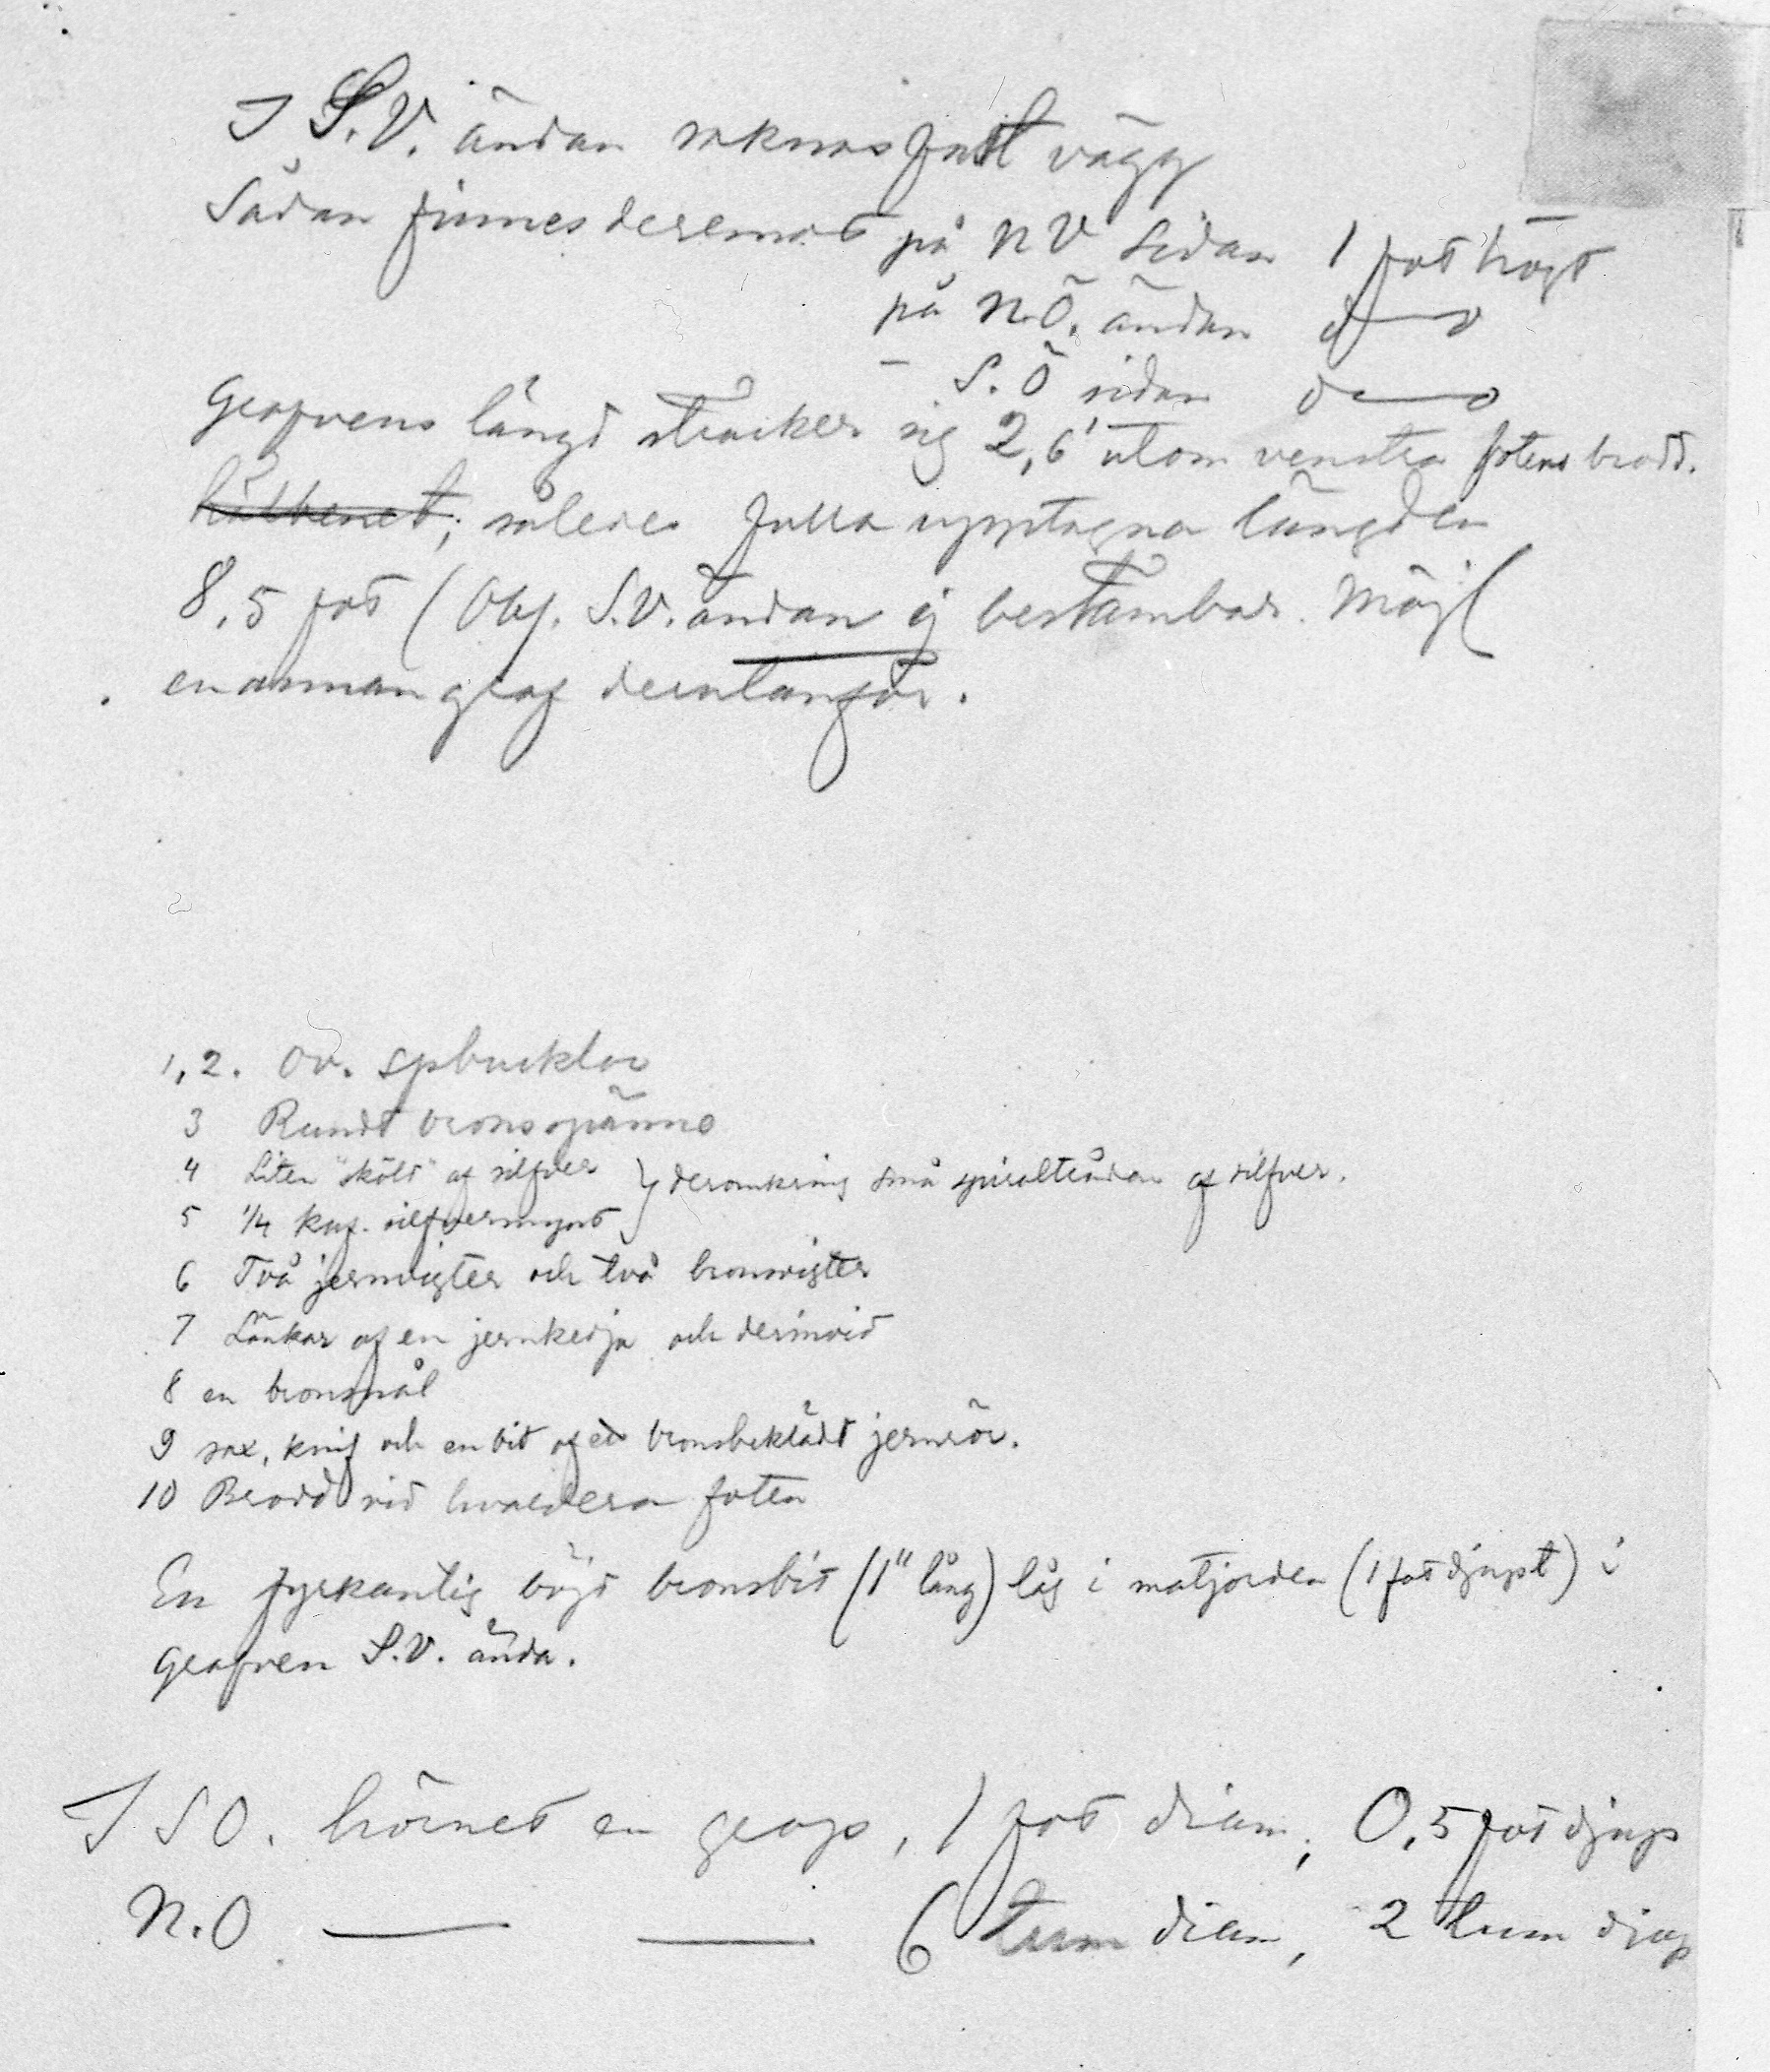 I S.V. ändan saknas fast vägg
Sådan finnes deremot på NV sidan 1 fot högt
på N.Ö. ändan d—o
– S.Ö sidan d—o
Grafvens längd sträcker sig 2,6' utom venstra fotens brodd.
hälbenet; således fulla upptagna längden
8,5 fot (Obs. S.V. ändan ej bestämbar. Möjl
en annan graf derutanför.
1,2. Ov. spbucklor
3 Rundt bronsspänne
4 Liten "sköld" af silfver } deromkring små spiraltrådar af silfver.
5 1/4 kuf. silfvermynt
6 Två jernvigter och två bronsvigter
7 Länkar af en jernkedja och derinvid
8 en bronsnål
9 sax, knif och en bit af ett bronsbeklädt jernrör.
10 Brodd vid hvardera foten
En fyrkantig böjd bronsbit (1" lång) låg i matjorden (1 fot djupt) i
grafven S.V. ända.
I SO. hörnet en grop, 1 fot diam, 0,5 fot djup
N.O — — 6 tum diam, 2 tum djup